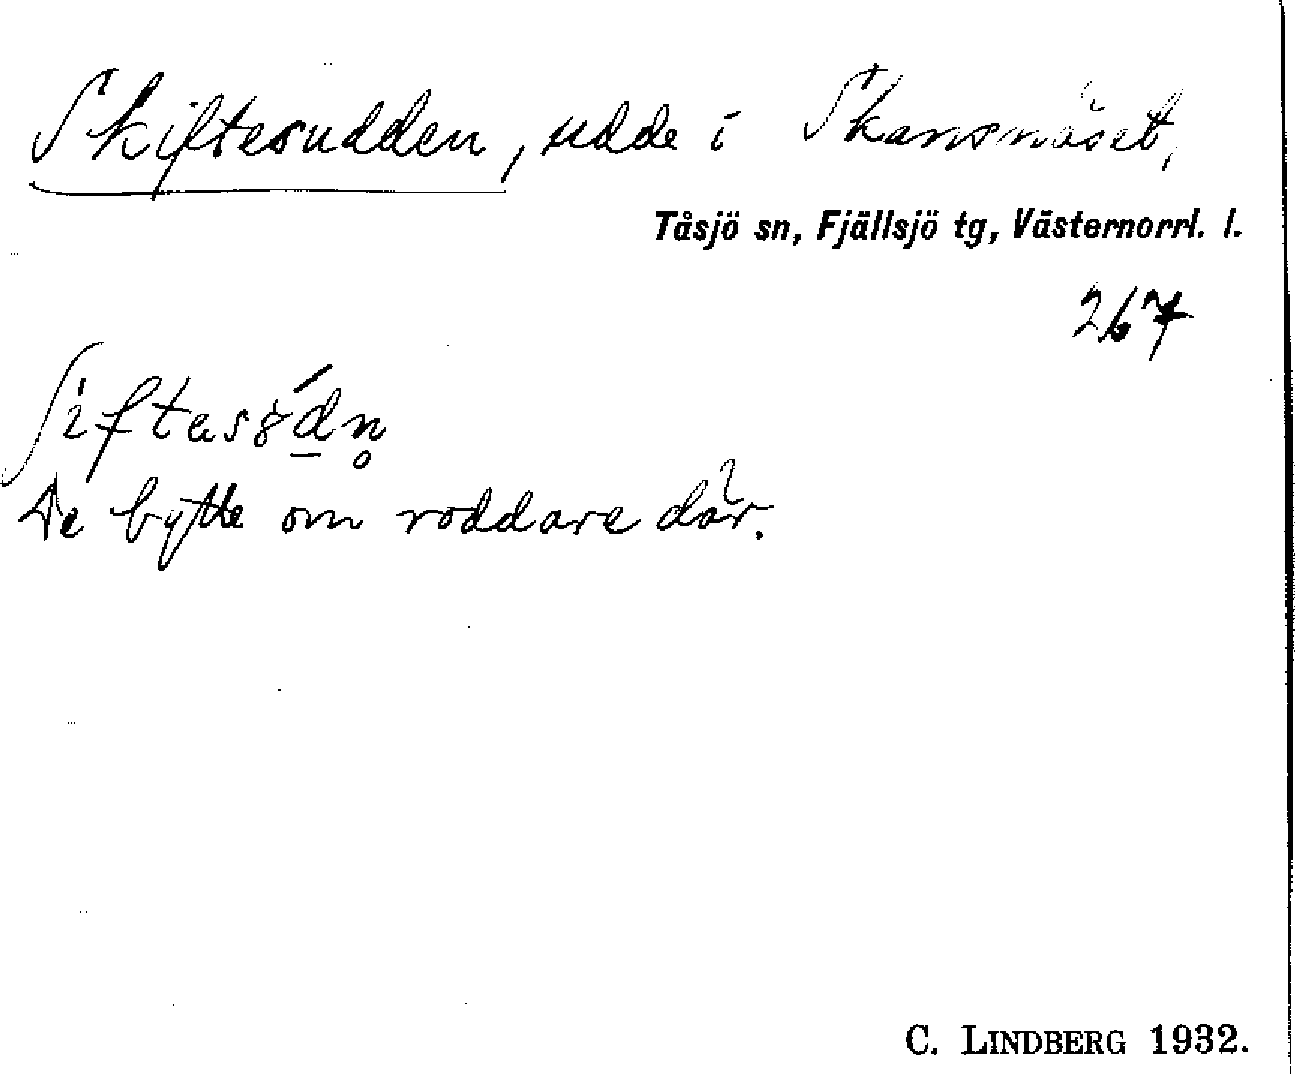 Skiftesudden, udde i Skansnäset,
Tåsjö sn, Fjällsjö tg, Västernorrl. l.
267
De bytte om roddare där.
C. LINDBERG 1932.